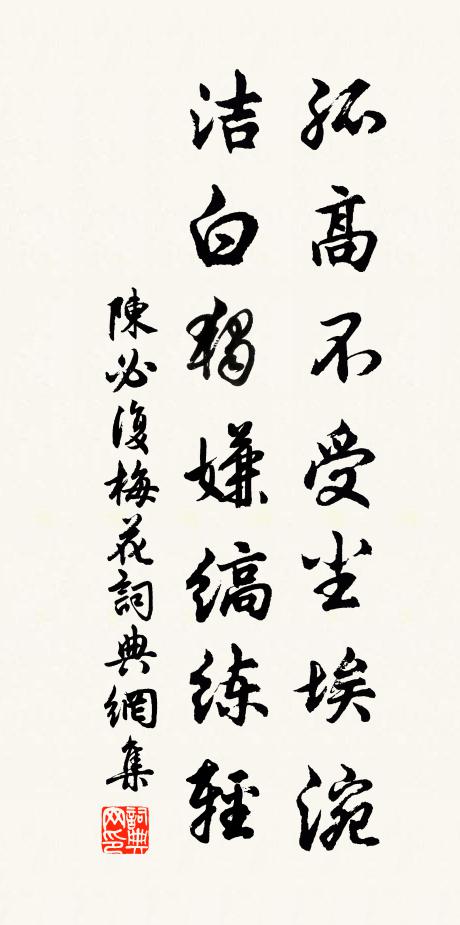 孤高不受尘埃涴
洁白獨嫌缟练輕
陳必復梅花詞典網集
詞典网印